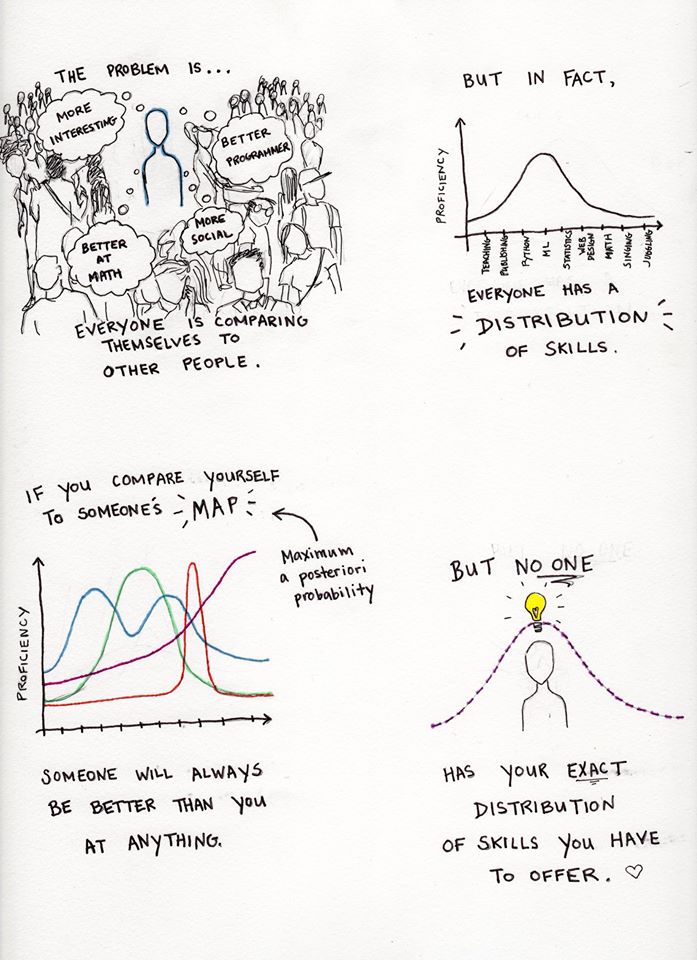 THE PROBLEM IS...
MORE
INTERESTING
BETTER
PROGRAMMER
MORE
SOCIAL
BETTER
AT
MATH
EVERYONE IS COMPARING
THEMSELVES TO
OTHER PEOPLE.
BUT IN FACT,
PROFICIENCY
TEACHING
PUBLISHING
PYTHON
ML
STATISTICS
WEB
DESIGN
MATH
SINGING
JUGGLING
EVERYONE HAS A
DISTRIBUTION
OF SKILLS.
IF YOU COMPARE YOURSELF
TO SOMEONE'S MAP
Maximum
a posteriori
probability
PROFICIENCY
SOMEONE WILL ALWAYS
BE BETTER THAN YOU
AT ANYTHING.
BUT NO ONE
HAS YOUR EXACT
DISTRIBUTION
OF SKILLS YOU HAVE
TO OFFER. ♡